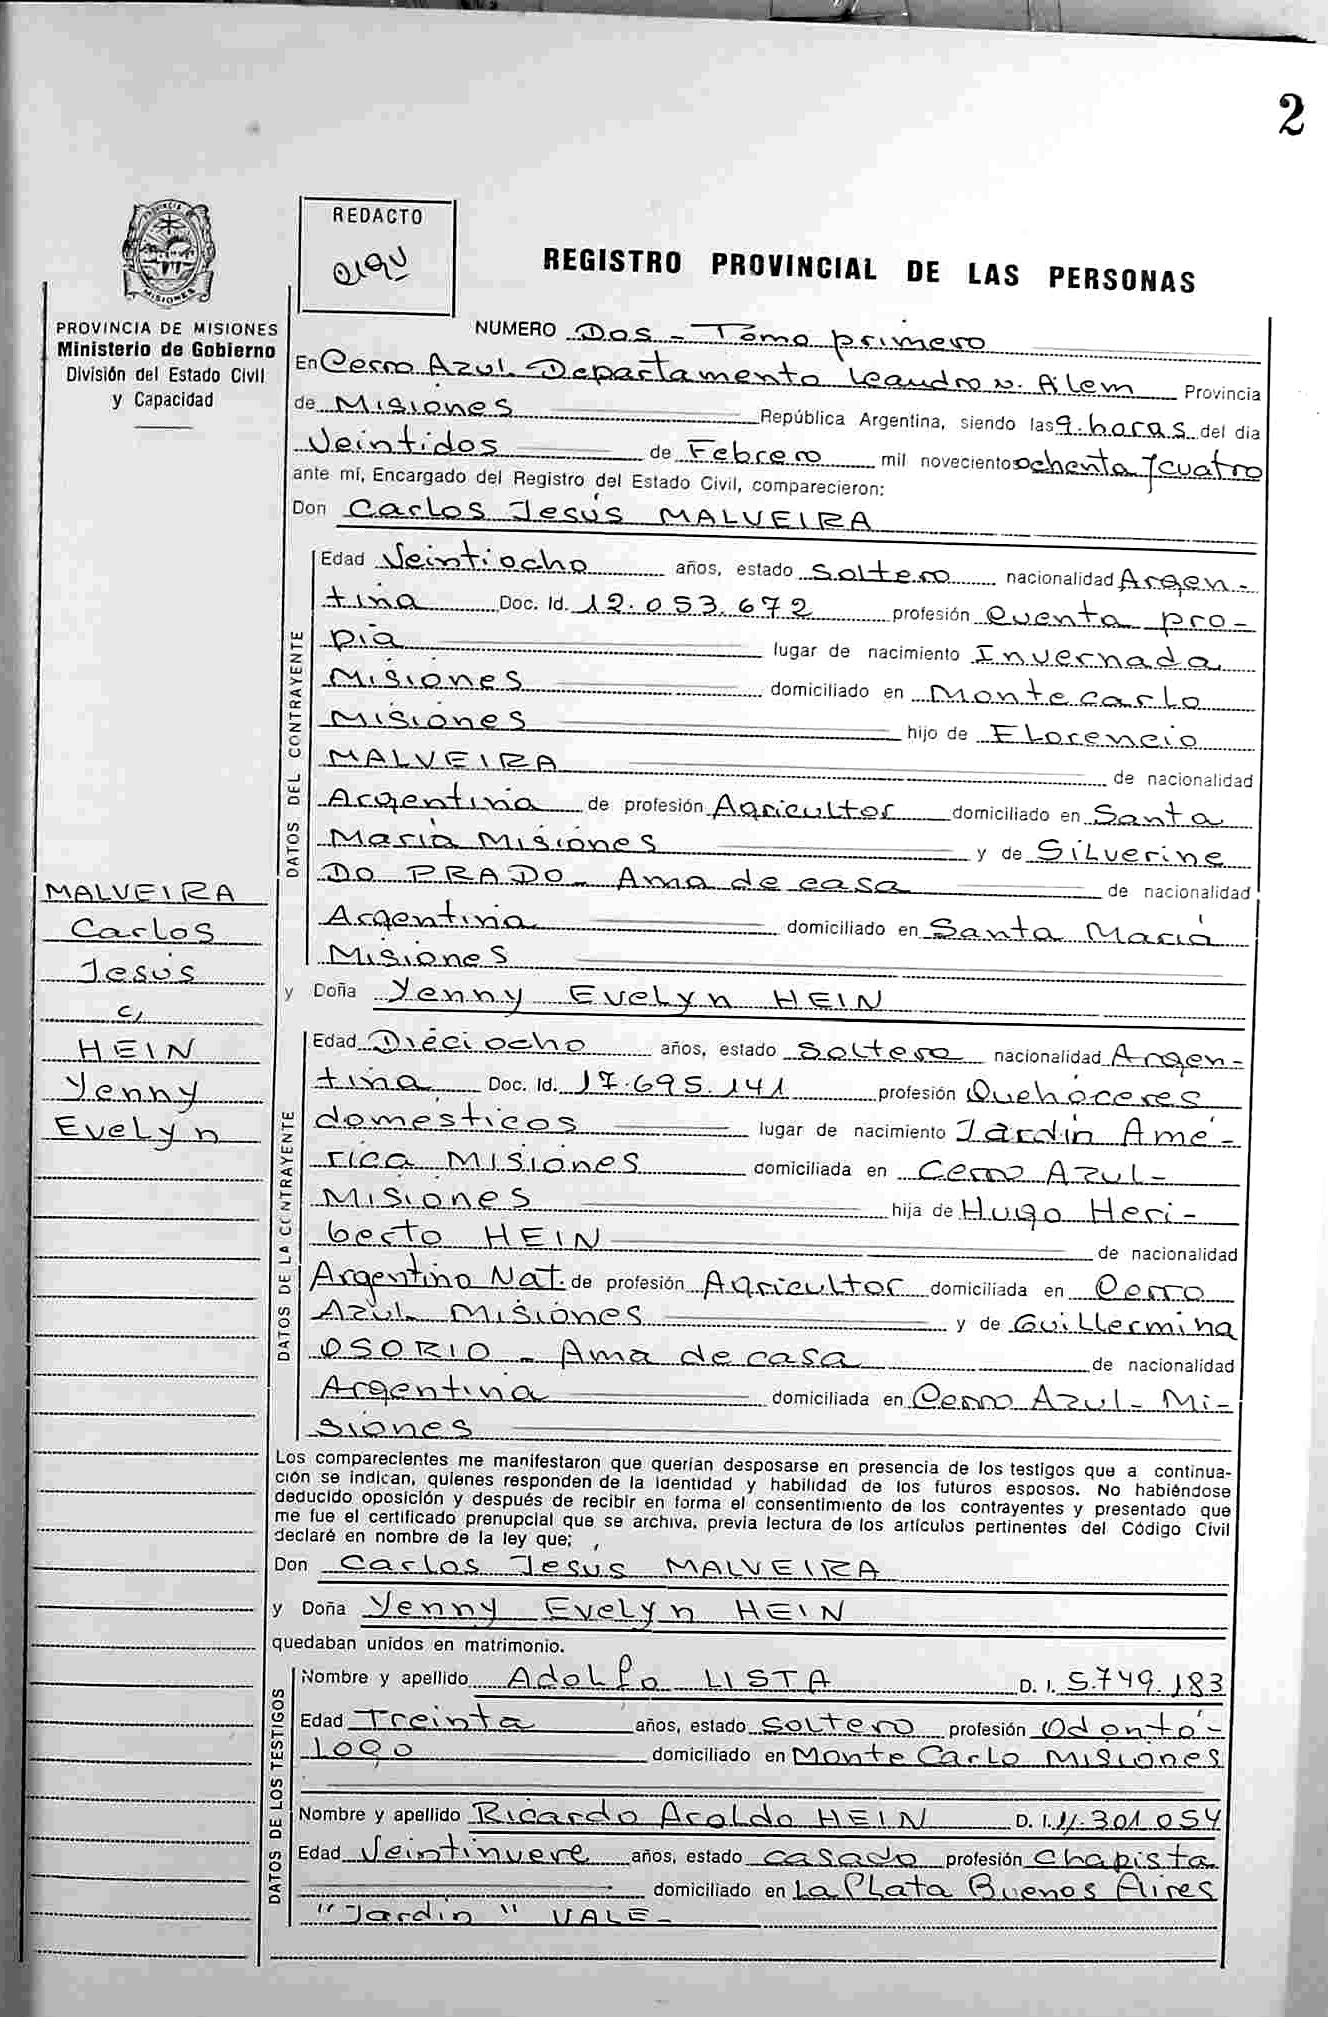 2
REDACTO
REGISTRO PROVINCIAL DE LAS PERSONAS
PROVINCIA DE MISIONES
Ministerio de Gobierno
División del Estado Civil
y Capacidad
NUMERO Dos - Tomo primero
En Cerro Azul Departamento Leandro N. Alem Provincia
de Misiones República Argentina, siendo las 9 horas del dia
Veintidos de Febrero mil novecientos ochenta y cuatro
ante mí, Encargado del Registro del Estado Civil, comparecieron:
Don Carlos Jesús MALVEIRA
DATOS DEL CONTRAYENTE
Edad Veintiocho años, estado Soltero nacionalidad Argen-
tina Doc. Id. 12.053.672 profesión Cuenta pro-
pia lugar de nacimiento Invernada
Misiones domiciliado en Montecarlo
Misiones hijo de Florencio
MALVEIRA de nacionalidad
Argentina de profesión Agricultor domiciliado en Santa
María Misiones y de Silverine
DO PRADO - Ama de casa de nacionalidad
Argentina domiciliado en Santa María
Misiones
MALVEIRA
Carlos
Jesús
c/
HEIN
Yenny
Evelyn
y Doña Yenny Evelyn HEIN
DATOS DE LA CONTRAYENTE
Edad Dieciocho años, estado Soltera nacionalidad Argen-
tina Doc. Id. 17.695.141 profesión Quehaceres
domésticos lugar de nacimiento Jardín Amé-
rica Misiones domiciliada en Cerro Azul -
Misiones hija de Hugo Heri-
berto HEIN de nacionalidad
Argentino Nat. de profesión Agricultor domiciliada en Cerro
Azul Misiones y de Guillermina
OSORIO - Ama de casa de nacionalidad
Argentina domiciliada en Cerro Azul - Mi-
siones
Los comparecientes me manifestaron que querían desposarse en presencia de los testigos que a continua-
ción se indican, quienes responden de la identidad y habilidad de los futuros esposos. No habiéndose
deducido oposición y después de recibir en forma el consentimiento de los contrayentes y presentado que
me fue el certificado prenupcial que se archiva, previa lectura de los artículos pertinentes del Código Civil
declaré en nombre de la ley que;
Don Carlos Jesús MALVEIRA
y Doña Yenny Evelyn HEIN
quedaban unidos en matrimonio.
DATOS DE LOS TESTIGOS
Nombre y apellido Adolfo LISTA D. I. 5.749.183
Edad Treinta años, estado Soltero profesión Odontó-
logo domiciliado en Monte Carlo Misiones
Nombre y apellido Ricardo Aroldo HEIN D. I. 11.301.054
Edad Veintinueve años, estado casado profesión Chapista
domiciliado en La Plata Buenos Aires
"Jardín" VALE-